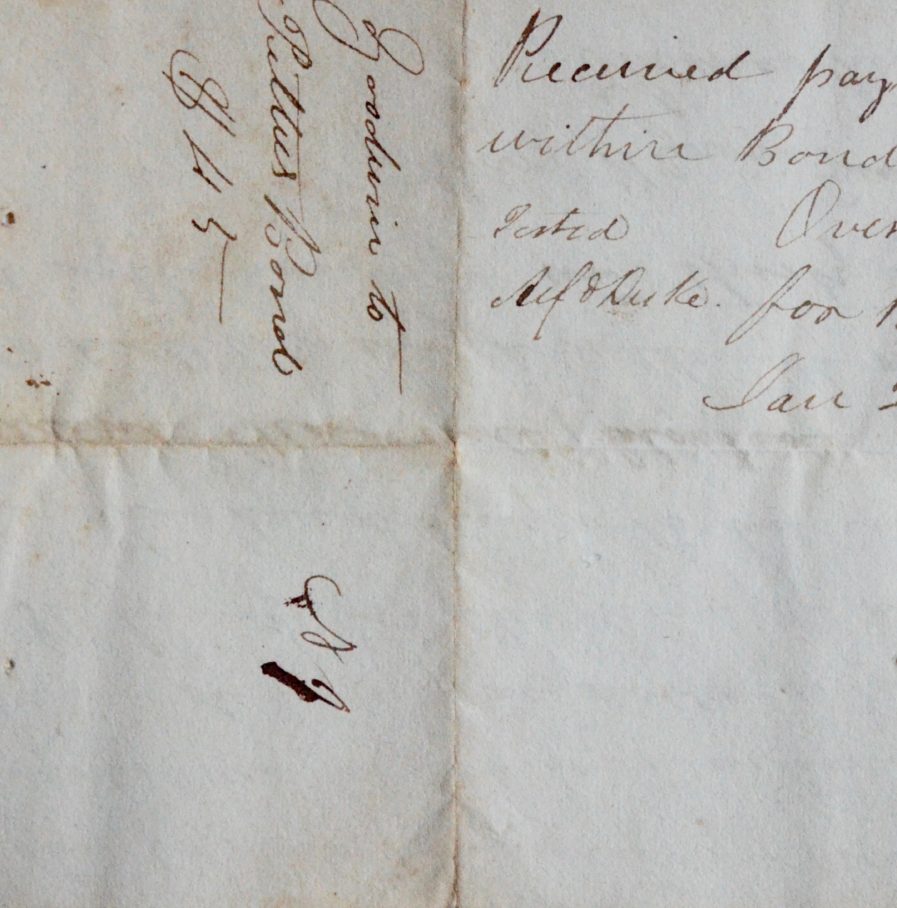 Goodwin to
Pettus Bond
$45
Received pay
within Bond
Tested Over
Alfd Duke. for
Jan 2